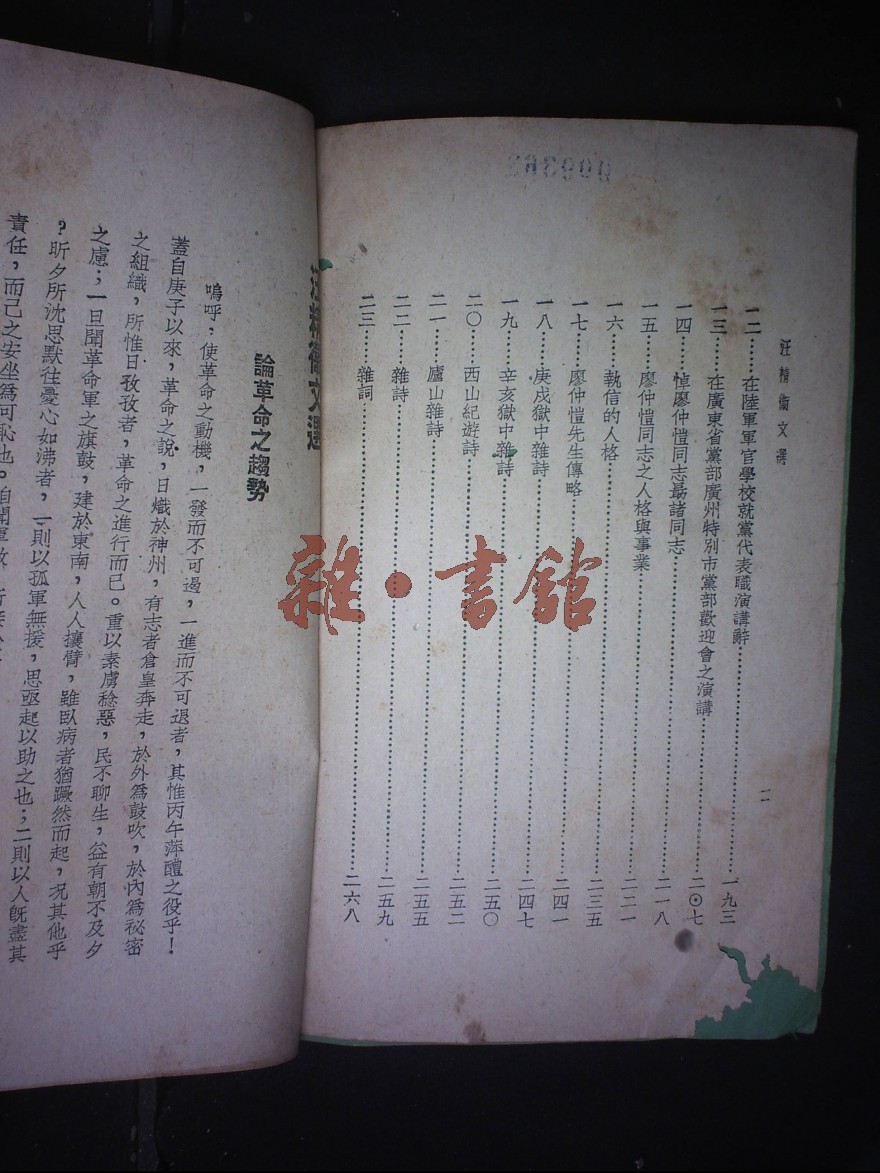 汪精衛文選
一二……在陸軍軍官學校就黨代表職演講辭……一九三
一三……在廣東省黨部廣州特別市黨部歡迎會之演講……二〇七
一四……悼廖仲愷同志勗諸同志……二一八
一五……廖仲愷同志之人格與事業……二二一
一六……執信的人格……二三五
一七……廖仲愷先生傳略……二四一
一八……庚戌獄中雜詩……二四七
一九……辛亥獄中雜詩……二五〇
二〇……西山紀遊詩……二五二
二一……廬山雜詩……二五五
二二……雜詩……二五九
二三……雜詞……二六八
二
雜·書館
汪精衛文選
論革命之趨勢
嗚呼,使革命之動機,一發而不可遏,一進而不可退者,其惟丙午萍醴之役乎!
蓋自庚子以來,革命之說,日熾於神州,有志者倉皇奔走,於外爲鼓吹,於內爲祕密
之組織,所惟日孜孜者,革命之進行而已。重以素虜稔惡,民不聊生,益有朝不及夕
之慮;一旦聞革命軍之旗鼓,建於東南,人人攘臂,雖臥病者猶蹶然而起,况其他乎
?昕夕所沈思默往憂心如沸者,一則以孤軍無援,思亟起以助之也;二則以人旣盡其
責任,而己之安坐爲可恥也。